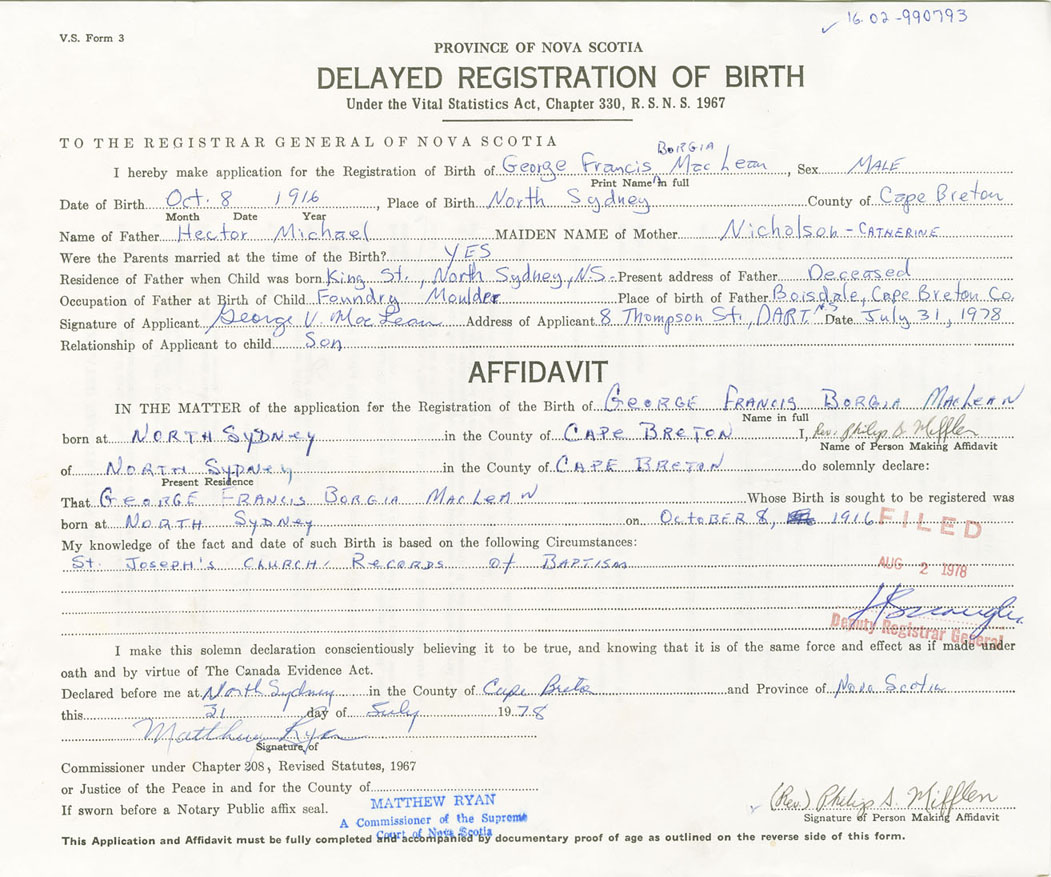 16.02-990793
V.S. Form 3
PROVINCE OF NOVA SCOTIA
DELAYED REGISTRATION OF BIRTH
Under the Vital Statistics Act, Chapter 330, R. S. N. S. 1967
TO THE REGISTRAR GENERAL OF NOVA SCOTIA
BORGIA
I hereby make application for the Registration of Birth of George Francis MacLean, Sex MALE
Print Name in full
Date of Birth Oct. 8 1916, Place of Birth North Sydney County of Cape Breton
Month Date Year
Name of Father Hector Michael MAIDEN NAME of Mother Nicholson - CATHERINE
Were the Parents married at the time of the Birth? YES
Residence of Father when Child was born King St., North Sydney, N.S. Present address of Father Deceased
Occupation of Father at Birth of Child Foundry Moulder Place of birth of Father Boisdale, Cape Breton Co.
Signature of Applicant George V. MacLean Address of Applicant 8 Thompson St., DART. N.S Date July 31, 1978
Relationship of Applicant to child Son
AFFIDAVIT
IN THE MATTER of the application for the Registration of the Birth of GEORGE FRANCIS BORGIA MACLEAN
Name in full
born at NORTH SYDNEY in the County of CAPE BRETON I, Rev. Philip D. Mifflen
Name of Person Making Affidavit
of NORTH SYDNEY in the County of CAPE BRETON do solemnly declare:
Present Residence
That GEORGE FRANCIS BORGIA MACLEAN Whose Birth is sought to be registered was
born at NORTH SYDNEY on OCTOBER 8, 1916
FILED
My knowledge of the fact and date of such Birth is based on the following Circumstances:
ST. JOSEPH'S CHURCH, RECORDS OF BAPTISM
AUG 2 1978
Deputy Registrar General
I make this solemn declaration conscientiously believing it to be true, and knowing that it is of the same force and effect as if made under
oath and by virtue of The Canada Evidence Act.
Declared before me at North Sydney in the County of Cape Breton and Province of Nova Scotia
this 31 day of July 1978
Matthew Ryan
Signature of
Commissioner under Chapter 208, Revised Statutes, 1967
or Justice of the Peace in and for the County of
If sworn before a Notary Public affix seal.
MATTHEW RYAN
A Commissioner of the Supreme
Court of Nova Scotia
(Rev.) Philip D. Mifflen
Signature of Person Making Affidavit
This Application and Affidavit must be fully completed and accompanied by documentary proof of age as outlined on the reverse side of this form.